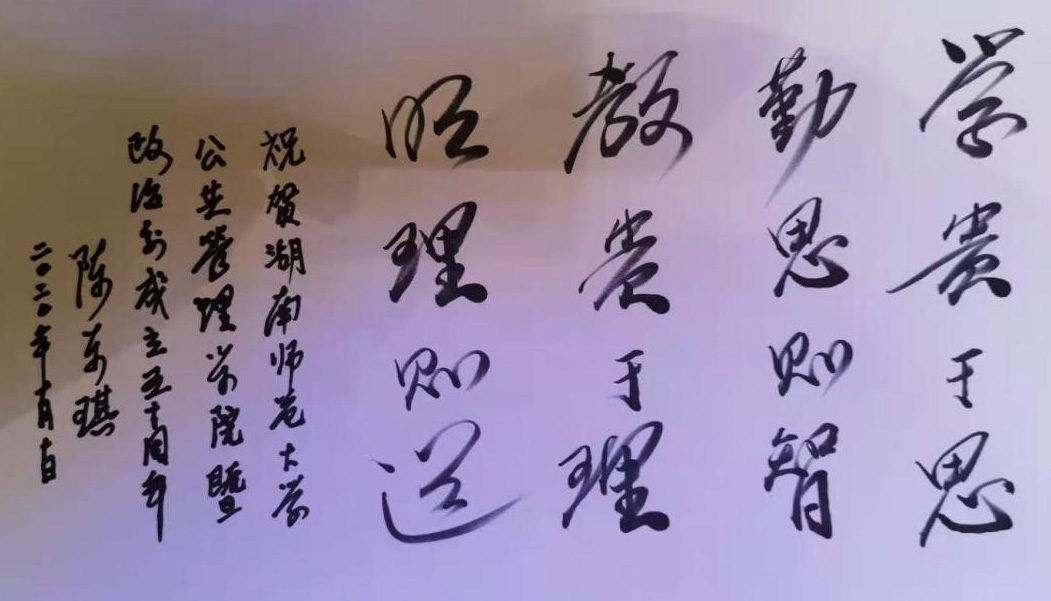 学贵于思
勤思则智
教贵于理
明理则道
祝贺湖南师范大学
公共管理学院暨
政治系成立五十周年
陈万琪
二〇二〇年十月十日